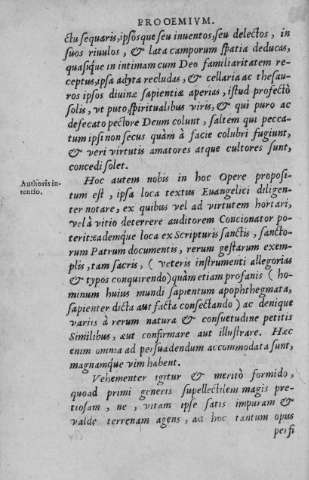 PROOEMIVM.
ctu sequaris, ipsosque seu inuentos, seu delectos, in
suos riuulos, & lata camporum spatia deducas,
quasique in intimam cum Deo familiaritatem re-
ceptus, ipsa adyta recludas, & cellaria ac thesau-
ros ipsos diuinæ sapientiæ aperias, istud profectò
solis, vt puto, spiritualibus viris, & qui puro ac
defæcato pectore Deum colunt, saltem qui pecca-
tum ipsi non secus quàm à facie colubri fugiunt,
& veri virtutis amatores atque cultores sunt,
concedi solet.
Hoc autem nobis in hoc Opere proposi-
Authoris in-
tentio.
tum est, ipsa loca textus Euangelici diligen-
ter notare, ex quibus vel ad virtutem hortari,
vel à vitio deterrere auditorem Concionator po-
terit: eademque loca ex Scripturis sanctis, sancto-
rum Patrum documentis, rerum gestarum exem-
plis, tam sacris, ( veteris instrumenti allegorias
& typos conquirendo) quàm etiam profanis ( ho-
minum huius mundi sapientum apophthegmata,
sapienter dicta aut facta consectando) ac denique
variis à rerum natura & consuetudine petitis
Similibus, aut confirmare aut illustrare. Hæc
enim omnia ad persuadendum accommodata sunt,
magnamque vim habent.
Vehementer igitur & meritò formido,
quoad primi generis supellectilem magis pre-
tiosam, ne, vitam ipse satis impuram &
valde terrenam agens, ad hoc tantum opus
persi